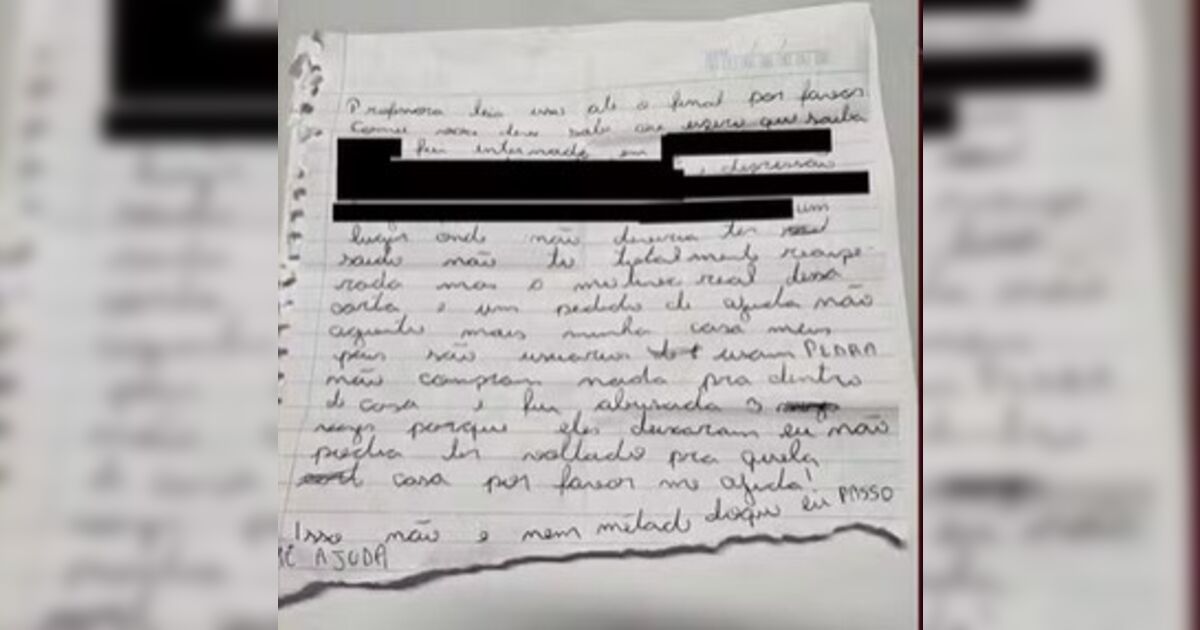 Professora leia isso até o final por favor
Como você deve saber ou espero que saiba
fui internada em
, depressão
um
lugar onde não deveria ter
saido não to totalmente recupe-
rada mas o motivo real dessa
carta e um pedido de ajuda não
aguento mais minha casa meus
pais são usuarios usam PEDRA
não compram nada pra dentro
de casa e fui abusada 3
vezes porque eles deixaram eu não
podia ter voltado pra quela
casa por favor me ajuda!
Isso não e nem metade doque eu PASSO
ME AJUDA